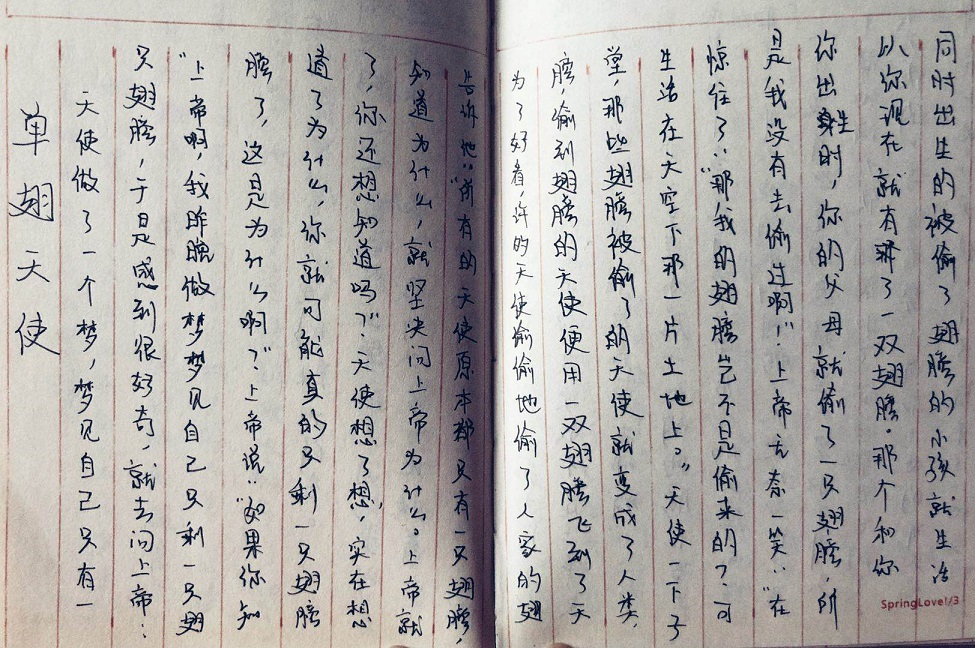 单翅天使
天使做了一个梦，梦见自己只有一
只翅膀，于是感到很好奇，就去问上帝：
“上帝啊，我昨晚做梦梦见自己只剩一只翅
膀了，这是为什么啊？”上帝说：“如果你知
道了为什么，你就可能真的只剩一只翅膀
了，你还想知道吗？”天使想了想，实在想
知道为什么，就坚决问上帝为什么。上帝就
告诉他：“所有的天使原本都只有一只翅膀，
为了好看，许的天使偷偷地偷了人家的翅
膀，偷到翅膀的天使便用一双翅膀飞到了天
堂，那些翅膀被偷了的天使就变成了人类，
生活在天空下那一片土地上。”天使一下子
惊住了：“那，我的翅膀岂不是偷来的？可
是我没有去偷过啊！”上帝无奈一笑：“在
你出生时，你的父母就偷了一只翅膀，所
以你现在就有了一双翅膀。那个和你
同时出生的被偷了翅膀的小孩就生活
SpringLove!/3